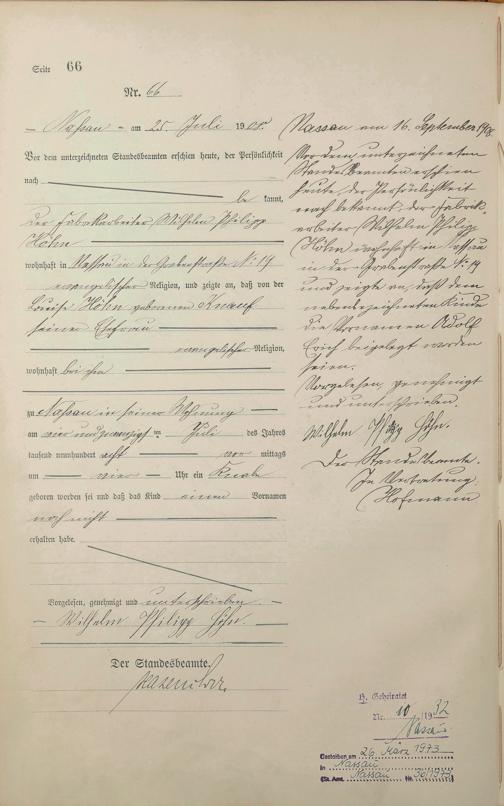 Seite 66
Nr. 66
Nassau am 25. Juli 1908.
Vor dem unterzeichneten Standesbeamten erschien heute, der Persönlichkeit
nach
be kannt,
der Fabrikarbeiter, Wilhelm Philipp
Höhn
wohnhaft in Nassau in der Grabenstraße No 19
evangelischer Religion, und zeigte an, daß von der
Louise Höhn geborenen Knauf
seiner Ehefrau
evangelischer Religion,
wohnhaft bei ihm
zu Nassau in seiner Wohnung
am vier und zwanzigsten Juli des Jahres
tausend neunhundert acht vor mittags
um vier Uhr ein Knabe
geboren worden sei und daß das Kind einen Vornamen
noch nicht
erhalten habe.
Vorgelesen, genehmigt und unterschrieben.
Wilhelm Philipp Höhn.
Der Standesbeamte.
Nassau am 16. September 1908.
Vor dem unterzeichneten
Standesbeamten erschien
heute, der Persönlichkeit
nach bekannt, der Fabrik-
arbeiter Wilhelm Philipp
Höhn wohnhaft in Nassau
in der Grabenstraße No 19
und zeigte an, daß dem
nebenbezeichneten Kinde
die Vornamen Adolf
Erich beigelegt worden
seien.
Vorgelesen, genehmigt
und unterschrieben.
Wilhelm Philipp Höhn.
Der Standesbeamte.
In Vertretung
Hofmann
Geheiratet
Nr. 10/1932
Nassau
Gestorben am 26. März 1973
in Nassau
(St. Amt. Nassau Nr. 36/1973)